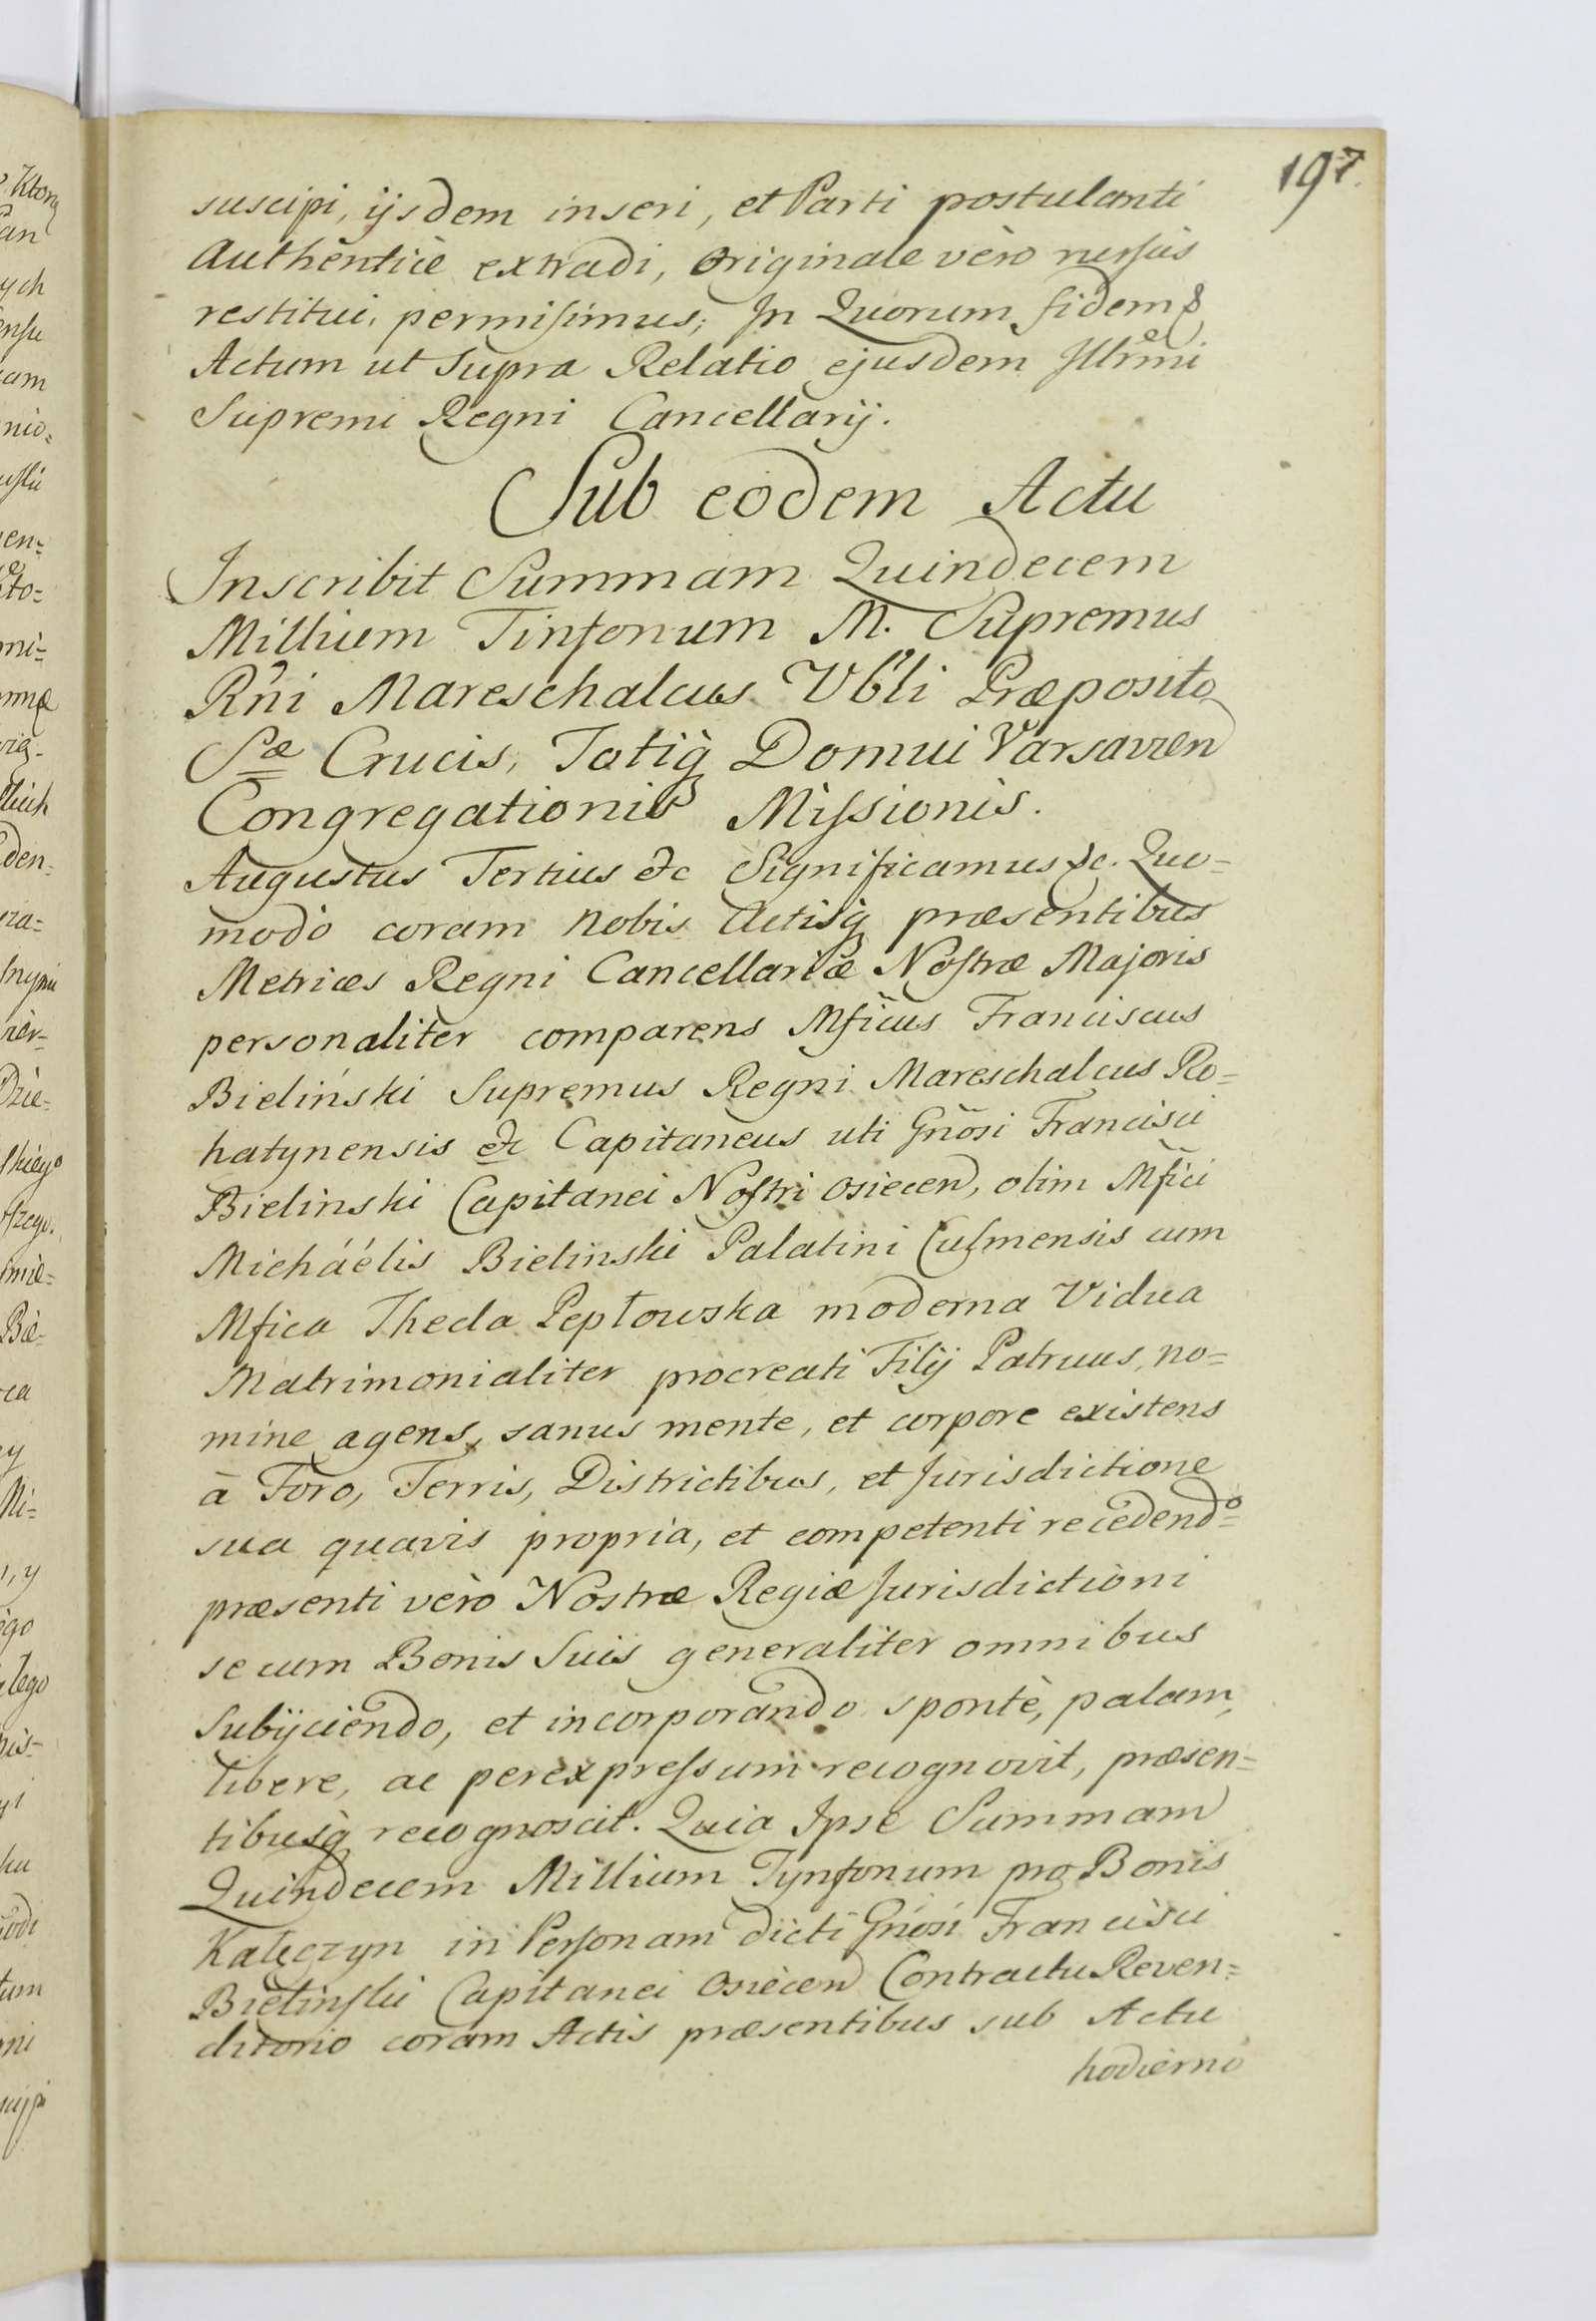 197.
suscipi, ijsdem inseri, et Parti postulanti
Authenticè extradi, Originale vèro rursùs
restitui, permisimus; In Quorum fidem &
Actum ut supra Relatio ejusdem Illrmi
Supremi Regni Cancellarij.
Sub eodem Actu
Inscribit Summam Quindecem
Millium Tinfonum M. Supremus
Rñi Mareschalcus Vbli Præposito
Sæ Crucis, Totiq Domui Varsavien
Congregationis Missionis.
Augustus Tertius &c Significamus &c. Quo=
modò coram Nobis Actisq præsentibus
Metrices Regni Cancellariæ Nostræ Majoris
personaliter comparens Mficus Franciscus
Bieliński Supremus Regni Mareschalcus Ro=
hatynensis &c Capitaneus uti Gnosi Francisci
Bielinski Capitanei Nostri Osiecen, olim Mfici
Micháélis Bielinski Palatini Culmensis cum
Mfica Thecla Pepłowska moderna Vidua
Matrimonialiter procreati Filij Patruus, no=
mine agens, sanus mente, et corpore existens
à Foro, Terris, Districtibus, et Jurisdictione
sua quavis propria, et competenti recedendo
præsenti vèro Nostræ Regiæ Jurisdictioni
se cum Bonis Suis generaliter omnibus
Subijciendo, et incorporando spontè, palam,
libere, ac per expressum recognovit, præsen=
tibusq recognoscit. Quia Ipse Summam
Quindecem Millium Tynfonum pro Bonis
Kałęczyn in Personam dicti Gnosi Francisci
Bielinski Capitanei Osiecen Contractu Reven=
ditorio coram Actis præsentibus sub Actu
hodierno